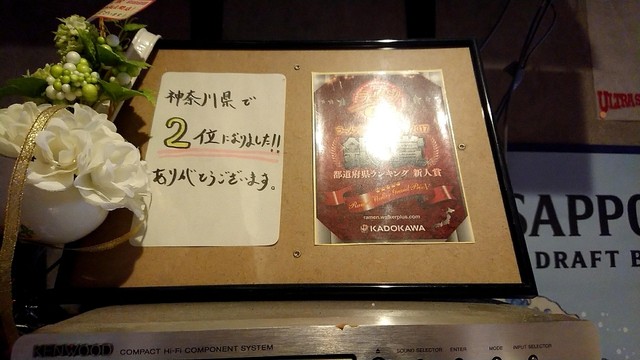 神奈川県で
2位になりました!!
ありがとうございます。
都道府県ランキング 新人賞
ramen.walkerplus.com
KADOKAWA
ULTRAS
SAPPO
DRAFT B
KENWOOD COMPACT Hi-Fi COMPONENT SYSTEM
SOUND SELECTOR ENTER MODE INPUT SELECTOR